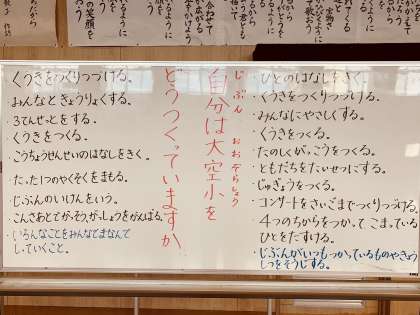 の笑顔を
作詞
じぶん おおぞらしょう
自分は大空小を
どうつくっていますか
・ひとのはなしをきく。
・くうきをつくりつづける。
・みんなにやさしくする。
・くうきをつくる。
・たのしくがっこうをつくる。
・ともだちをたいせつにする。
・じゅぎょうをつくる。
・コンサートをさいごまでつくりつづける。
・4つのちからをつかってこまっている
ひとをたすける。
・じぶんがいつもつかっているものやきょう
しつをそうじする。
・くうきをつくりつづける。
・みんなときょうりょくする。
・3てんせっとをする。
・くうきをつくる。
・こうちょうせんせいのはなしをきく。
・たった1つのやくそくをまもる。
・じぶんのいけんをいう。
・こんさあとでがっそう、がっしょうをがんばる。
・いろんなことをみんなでまなんで
していくこと。